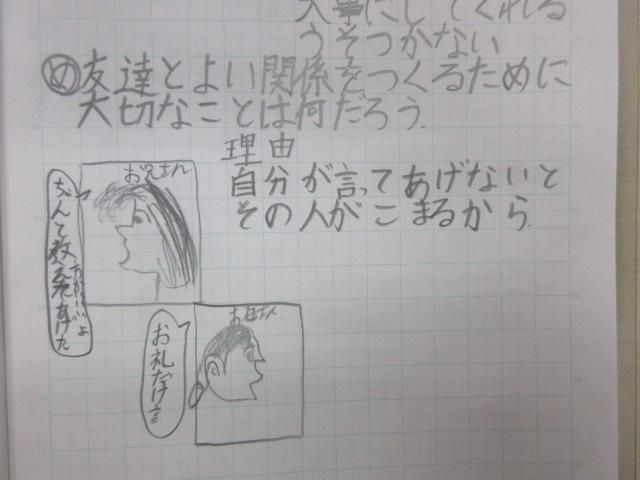 大事にしてくれる
うそつかない
め 友達とよい関係をつくるために
大切なことは何だろう。
理由
自分が言ってあげないと
その人がこまるから。
お兄さん
方がいいよ
お母さん
お礼だけ言